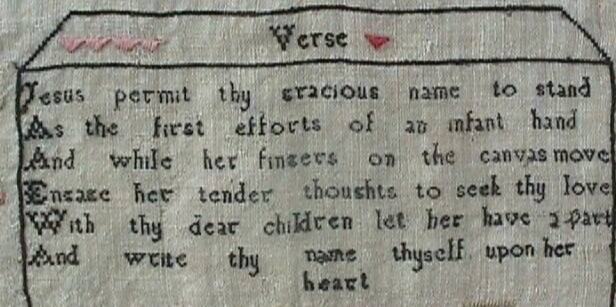 Verse
Jesus permit thy gracious name to stand
As the first efforts of an infant hand
And while her fingers on the canvas move
Engage her tender thoughts to seek thy love
With thy dear children let her have a part
And write thy name thyself upon her
heart